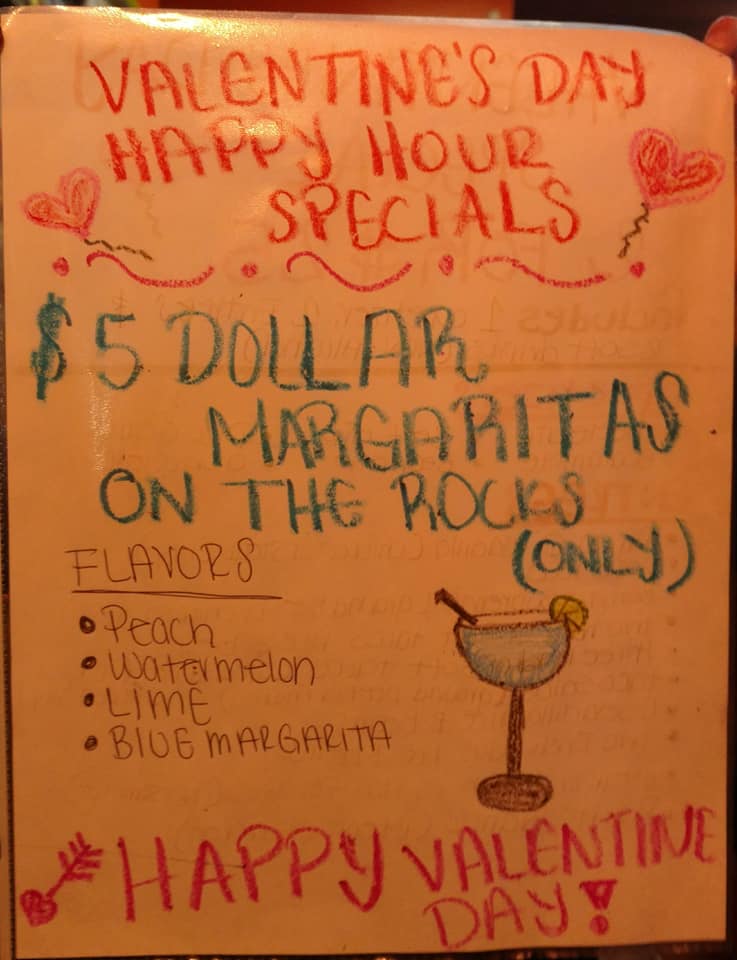 VALENTINE'S DAY
HAPPY HOUR
SPECIALS
$5 DOLLAR
MARGARITAS
ON THE ROCKS
(ONLY)
FLAVORS
• Peach
• Watermelon
• LIME
• BLUE MARGARITA
HAPPY VALENTINE
DAY!